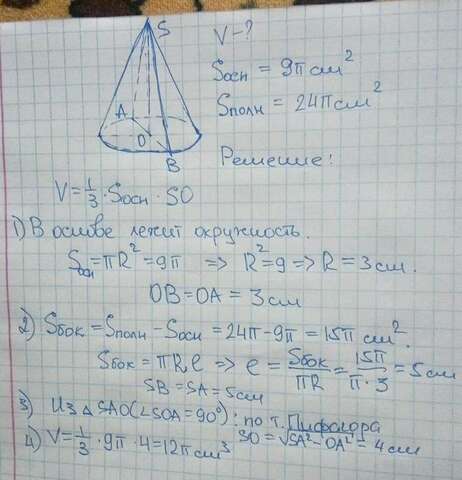 S
A
O
B
V-?
Sосн = 9π см²
Sполн = 24π см²
Решение:
V = 1/3 · Sосн · SO
1) В основе лежит окружность.
Sосн = πR² = 9π => R² = 9 => R = 3 см.
OB = OA = 3 см
2) Sбок = Sполн - Sосн = 24π - 9π = 15π см².
Sбок = πRℓ => ℓ = Sбок/πR = 15π/π·3 = 5 см
SB = SA = 5 см
3) Из △ SAO (∠SOA = 90°): по т. Пифагора
SO = √SA² - OA² = 4 см
4) V = 1/3 · 9π · 4 = 12π см³